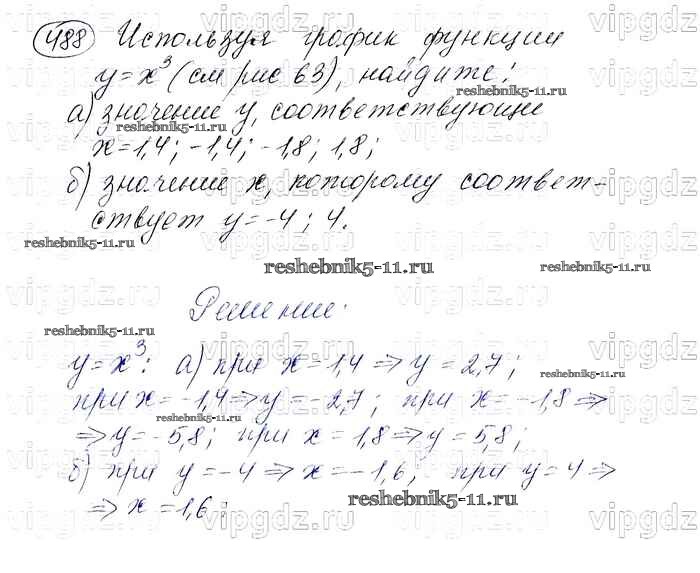 488 Используя график функции
y = x³ (см рис 63), найдите:
а) значение y, соответствующие
x = 1,4; -1,4; -1,8; 1,8;
б) значение x, которому соответ-
ствует y = -4; 4.
Решение:
y = x³: а) при x = 1,4 ⇒ y = 2,7;
при x = -1,4 ⇒ y = -2,7; при x = -1,8 ⇒
⇒ y = -5,8; при x = 1,8 ⇒ y = 5,8;
б) при y = -4 ⇒ x = -1,6, при y = 4 ⇒
⇒ x = 1,6;
reshebnik5-11.ru
vipgdz